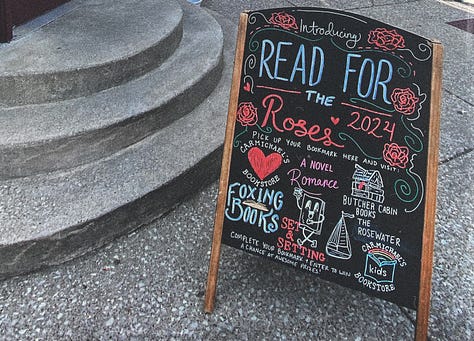 Introducing
READ FOR
THE
Roses 2024
PICK UP YOUR BOOKMARK HERE AND VISIT!
CARMICHAEL'S
BOOKSTORE
A NOVEL
Romance
BUTCHER CABIN
BOOKS
FOXING
BOOKS
SET
&
SETTING
THE
ROSEWATER
CARMICHAEL'S
kids
BOOKSTORE
COMPLETE YOUR BOOKMARK & ENTER TO WIN
A CHANCE AT AWESOME PRIZES!